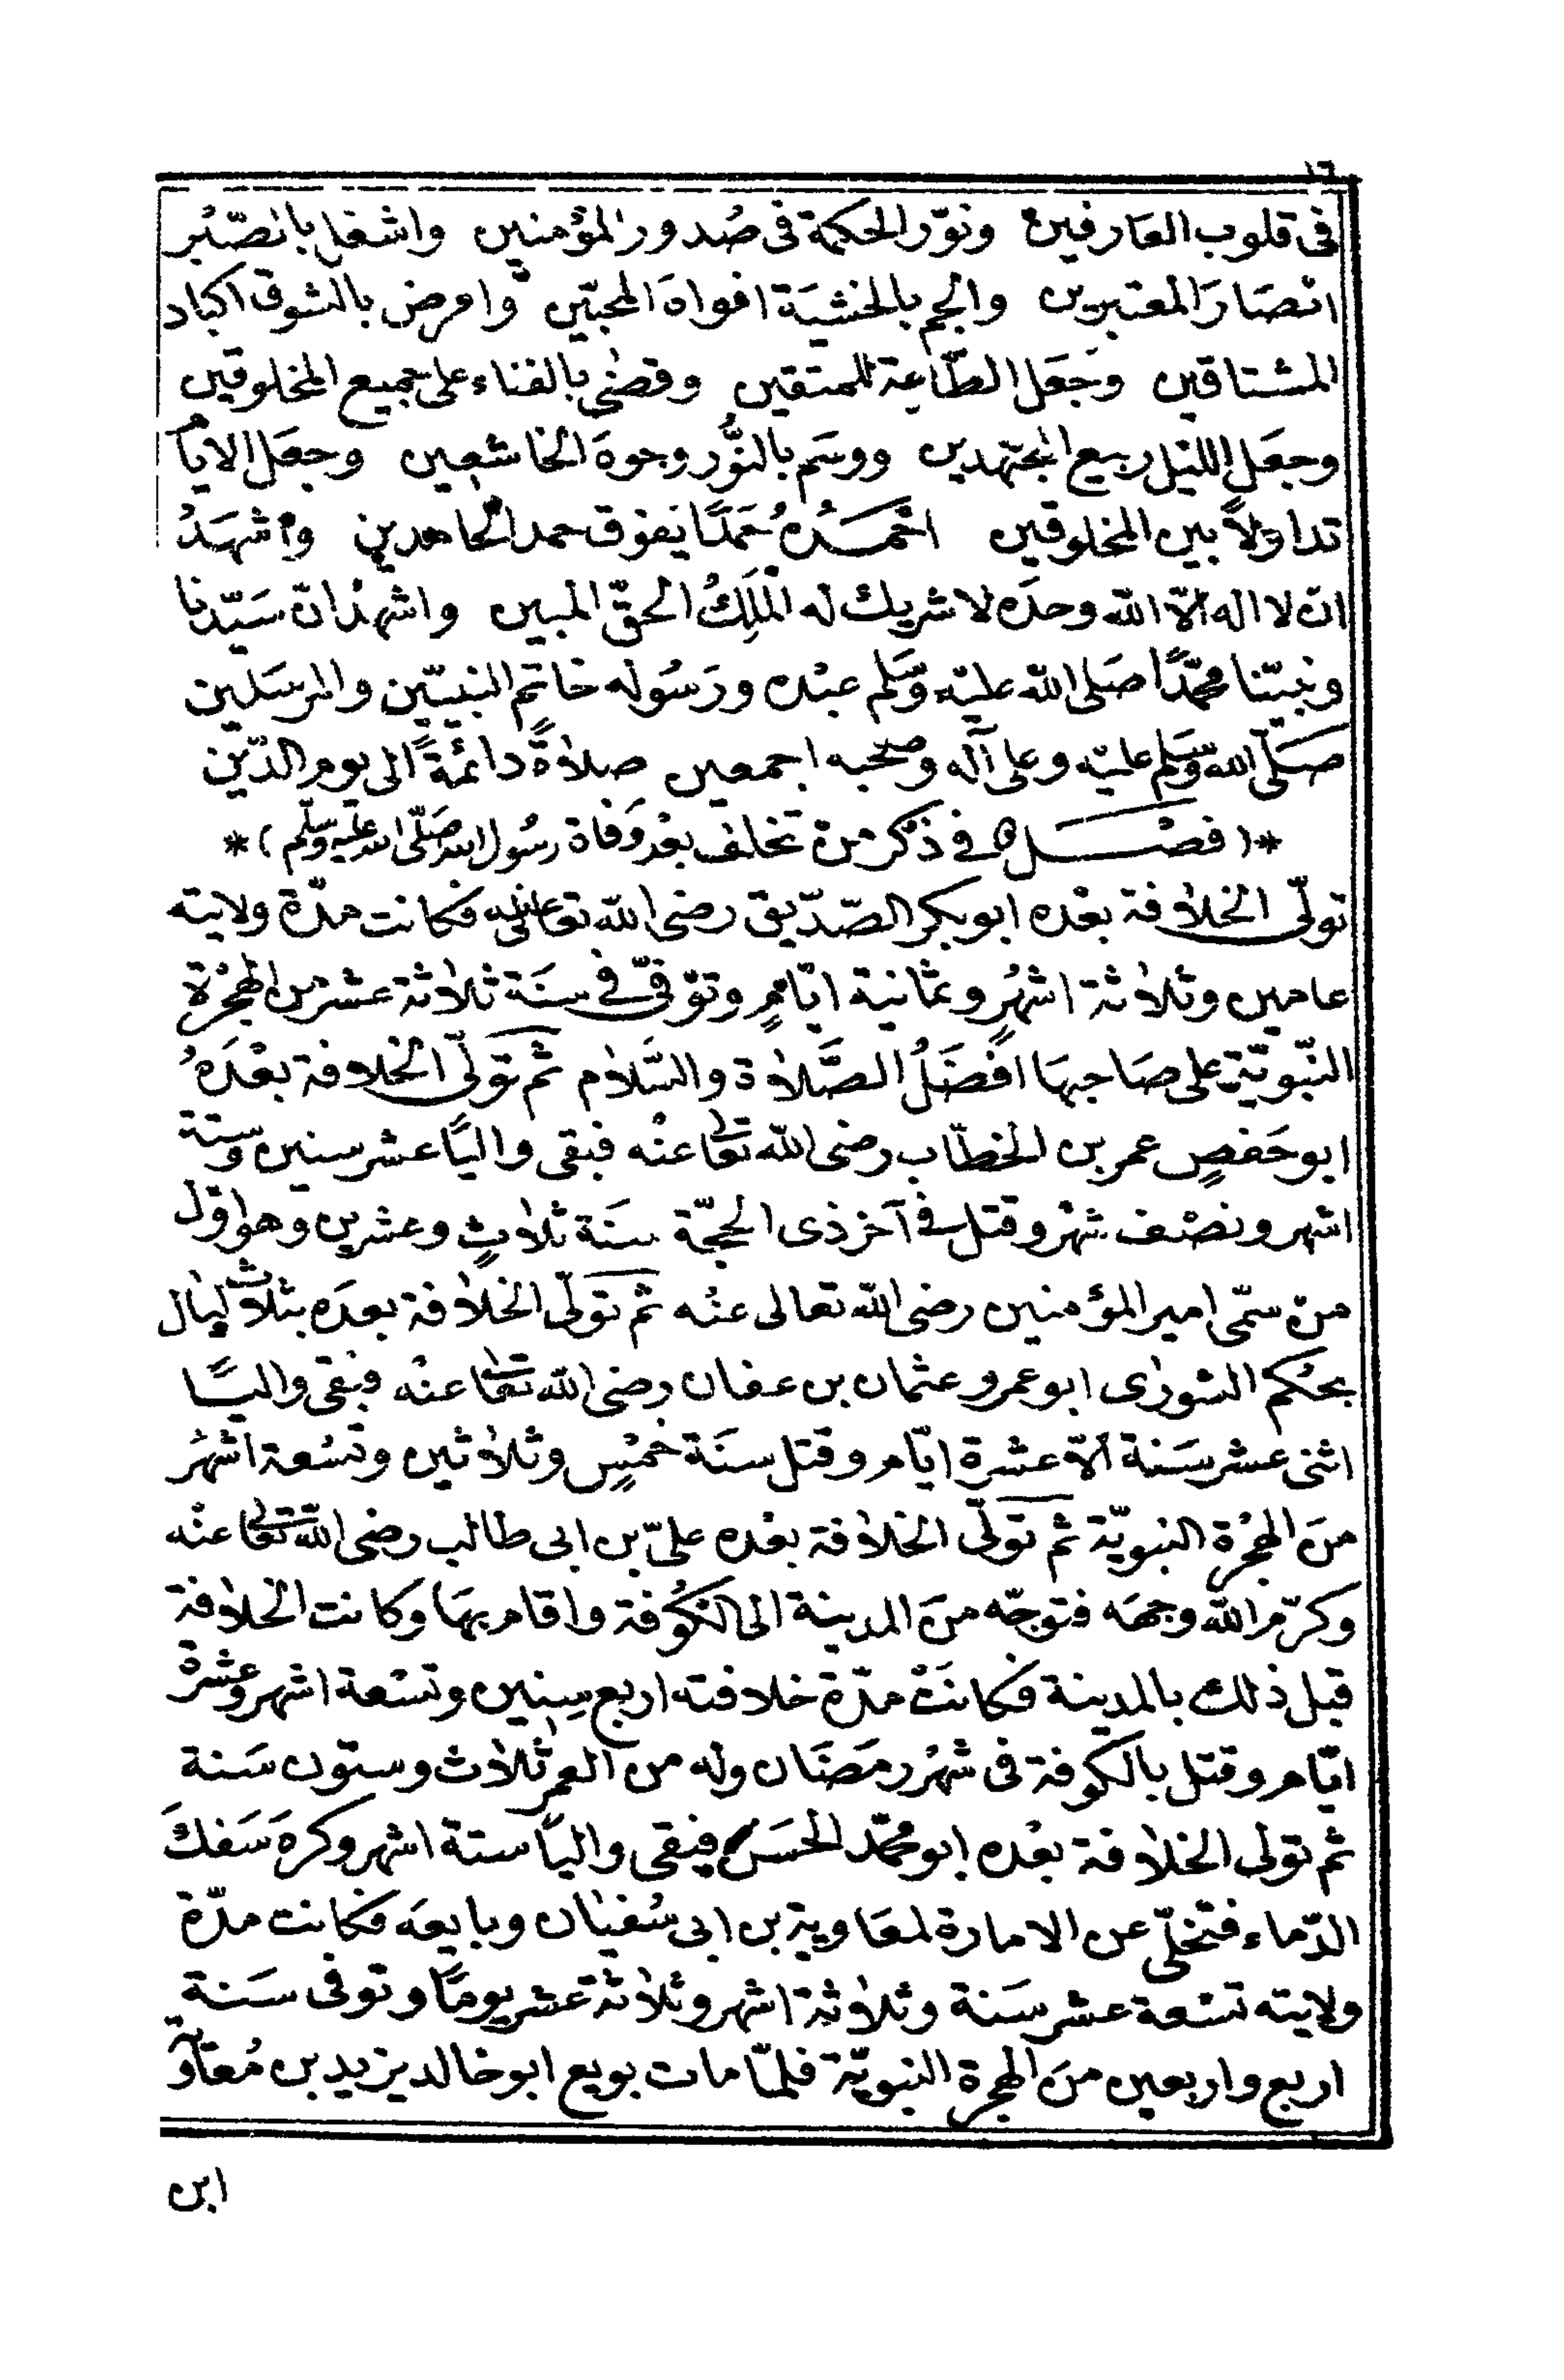 ١٦
فى قلوب العارفين ونوّر الحكمة فى صُدور المؤمنين واشغل بالصّبْر
ابْصَارَ المعتبرين والجم بالخشيَة افواهَ المحبّين وامرض بالشوق اكباد
المشتاقين وجَعَل الطّاعة للمتقين وقضىٰ بالفناء على جميع المخلوقين
وجعَل الليْل ربيع المجتهدين ووسَم بالنوُّر وجوهَ الخاشعين وجعَل الايام
تداولاً بين المخلوقين احْمَدُهُ حَمدًا يَفوْق حمد الحامدين واشهَدُ
ان لا اله الاّ الله وحدَه لا شريك له المَلِكُ الحقّ المبين واشهدُ انّ سَيّدنا
ونبيّنا محمّدًا صَلى الله عليْه وَسَلم عبْده ورَسُوله خاتم النبيّين والمرسَلين
صَلّى الله وسَلم عليْه وعلى آله وصحْبه اجمعين صلاةً دائمَةً الى يوم الدّين
*(فصْل فى ذكر من تخلف بعْد وَفاة رسُول الله صَلّى الله عليْه وسَلم)*
تولّى الخلافة بعْده ابو بكر الصّدّيق رضى الله تعالى عنه فكانت مدّة ولايته
عامين وثلاثة اشهُرٍ وثمانية ايّامٍ وتوفّى فى سنَة ثلاثة عشر من الهجْرة
النّبويّة على صَاحبهَا افضَلُ الصَّلاة والسَّلام ثم تولّى الخلافة بعْدَهُ
ابو حَفصٍ عمر بن الخطّاب رضى الله تعالى عنْه فبقى واليًا عشر سنين وستة
اشهر ونصْف شهْر وقتل فى آخر ذى الحجّة سَنَة ثلاثٍ وعشرين وهو اوّل
من سمّى امير المؤمنين رضى الله تعالى عنْه ثم تولّى الخلافة بعدَه بثلاث ليال
بحكم الشورٰى ابو عمرو عثمان بن عفان رضى الله تعالى عنْه فبقى واليًا
اثنى عشر سَنة الاّ عشرة ايّام وقتل سنَة خمْسٍ وثلاثين وتسْعة اشهُر
منَ الهجْرة النبويّة ثم تولّى الخلافة بعْده علىّ بن ابى طالب رضى الله تعالى عنْه
وكرّم الله وجهَه فتوجّه منَ المدينة الى الكُوْفة واقام بهَا وكانت الخلافة
قبل ذلك بالمدينة فكانَتْ مدّة خلافته اربع سِنين وتسْعة اشهر وعشرة
ايّام وقتل بالكوفة فى شهْر رمَضَان وله من العمر ثلاث وستون سَنة
ثم تولى الخلافة بعْده ابو محمّد الحسَن فبقى والياً ستة اشهر وكرهَ سَفكَ
الدّماء فتخلّى عن الامارة لمعَاوية بن ابى سُفيٰان وبايعَه فكانت مدّة
ولايته تسْعة عشر سَنة وثلاثة اشهر وثلاثة عشر يومًا وتوفى سَنة
اربع واربعين منَ الهجرة النبويّة فلمّا مات بويع ابو خالد يزيد بن مُعَاوية
ابن